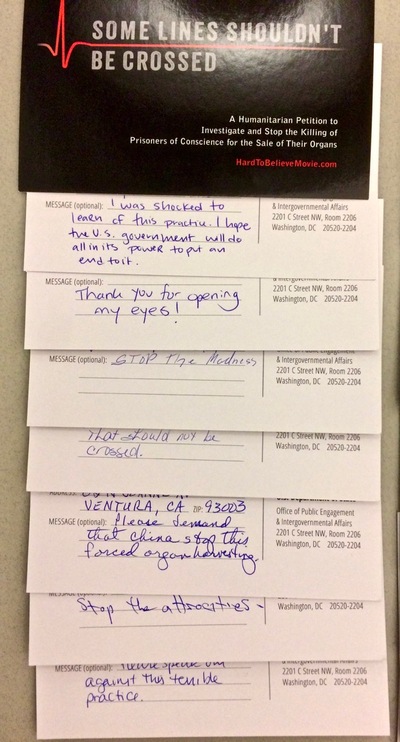 SOME LINES SHOULDN'T
BE CROSSED
A Humanitarian Petition to
Investigate and Stop the Killing of
Prisoners of Conscience for the Sale of Their Organs
HardToBelieveMovie.com
MESSAGE (optional): I was shocked to
learn of this practice. I hope
the U.S. government will do
all in its power to put an
end to it.
& Intergovernmental Affairs
2201 C Street NW, Room 2206
Washington, DC 20520-2204
MESSAGE (optional):
Thank you for opening
my eyes!
& Intergovernmental Affairs
2201 C Street NW, Room 2206
Washington, DC 20520-2204
MESSAGE (optional): STOP the Madness
& Intergovernmental Affairs
2201 C Street NW, Room 2206
Washington, DC 20520-2204
that should not be
crossed.
2201 C Street NW, Room 2206
Washington, DC 20520-2204
VENTURA, CA ZIP: 93003
MESSAGE (optional): Please demand
that China stop this
forced organ harvesting.
Office of Public Engagement
& Intergovernmental Affairs
2201 C Street NW, Room 2206
Washington, DC 20520-2204
Stop the attrocities -
Washington, DC 20520-2204
MESSAGE (optional): Please speak out
against this terrible
practice.
& Intergovernmental Affairs
2201 C Street NW, Room 2206
Washington, DC 20520-2204